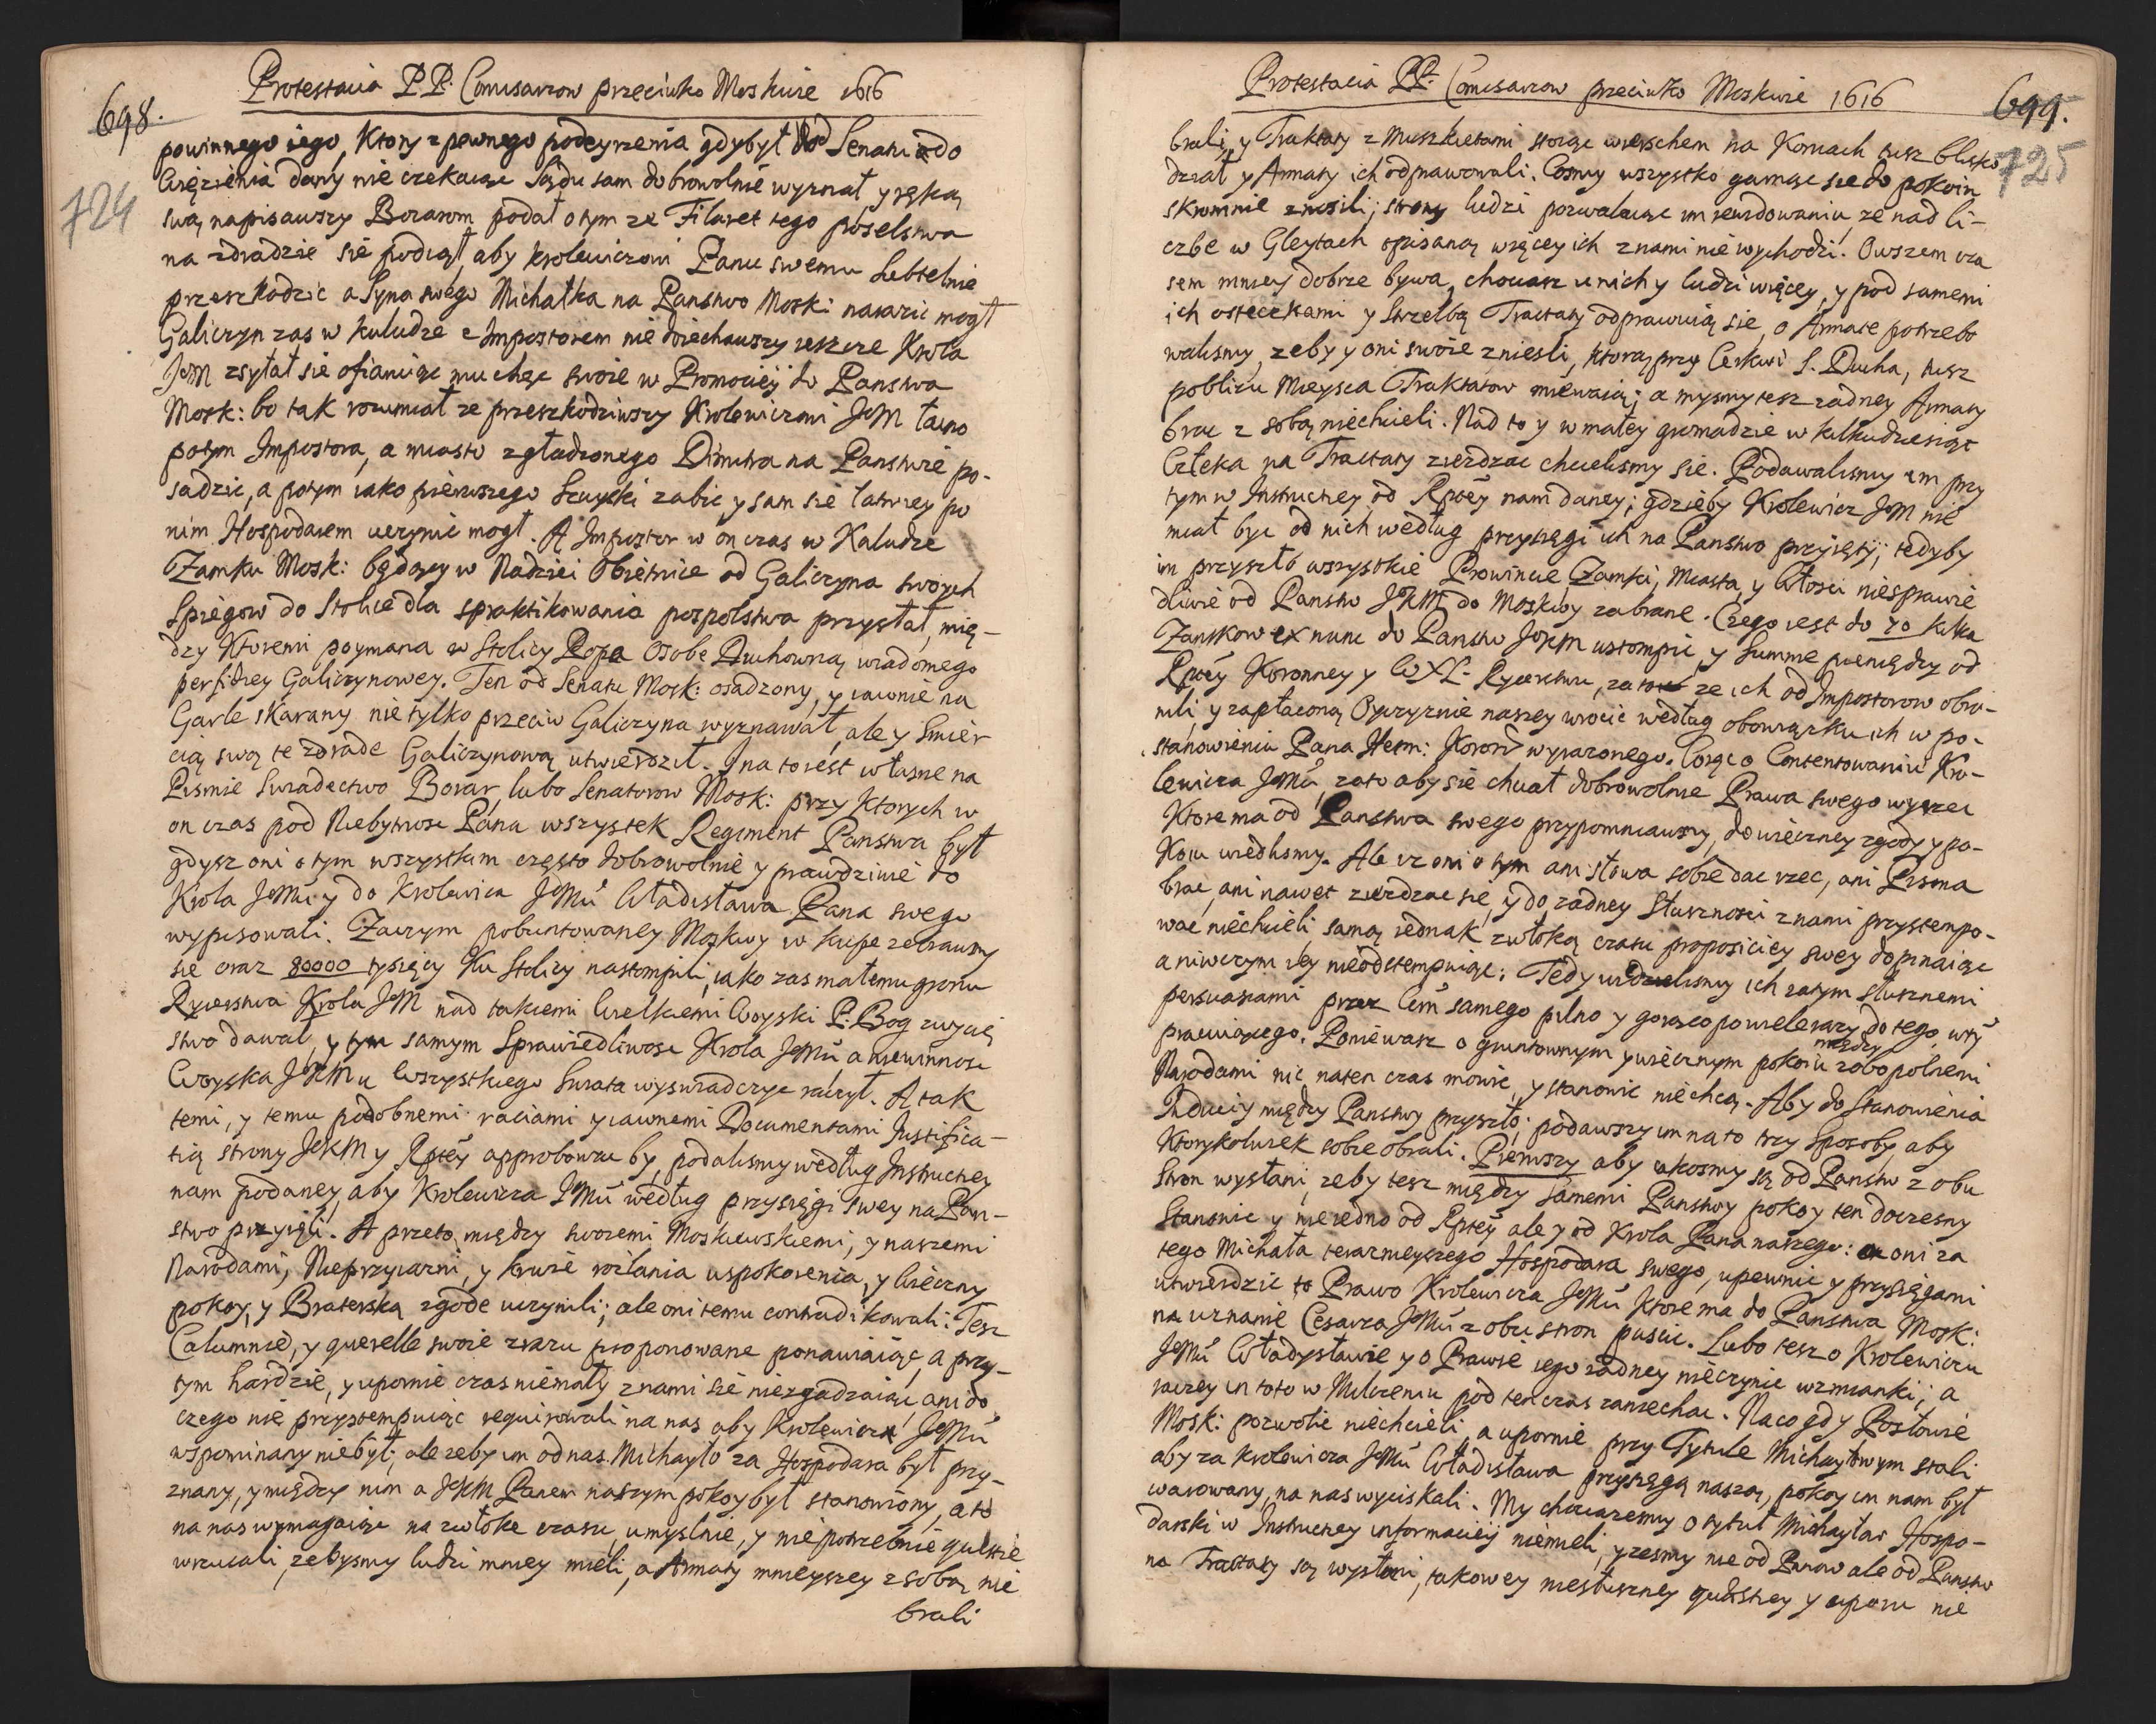 698.
Protestacia P.P. Comisarzow przeciwko Moskwie 1616
724
powinnego iego, Ktory z pewnego podeyrzenia gdy był od Senatu do
Więzienia dany nie czekaiąc Sądu sam dobrowolnie wyznał y ręką
swą napisawszy Boiarom podał o tym ze Filaret tego poselstwa
na zdradzie się podiął, aby Krolewiczowi Panu swemu Subtelnie
przeszkodzic a Syna swego Michałka na Panstwo Mosk: narazic mogł
Galiczyn zas w Kałudze z Impostorem nie doiechawszy ieszcze Krola
JeM zsyłał się ofiaruiąc mu chęc swoie w Promociey do Panstwa
Mosk: bo tak rozumiał ze przeszkodziwszy Krolewiczowi JeM łacno
potym Impostora, a miasto zgładzonego Dimitra na Panstwie po-
sadzic, a potym iako pierwszego Szuyski zabic y sam się łatwiey po
nim Hospodarem uczynic mogł. A Impostor w on czas w Kałudze
Zamku Mosk: będący w Nadziei Obietnice od Galiczyna swoych
Spiegow do Stolice dla spraktikowania pospolstwa przysłał, mię-
dzy Ktoremi poymana w Stolicy Popa Osobę Duchowną wiadomego
perfidiey Galiczynowey. Ten od Senatu Mosk: osadzony, y iawnie na
Garle skarany nie tylko przeciw Galiczyna wyznawał, ale y Smier
cią swą te zdrade Galiczynową utwierdził. I na to iest własne na
Pismie Swiadectwo Boiar, lubo Senatorow Mosk: przy Ktorych w
on czas pod Niebytnosc Pana wszystek Regiment Panstwa był
gdysz oni o tym wszystkim często dobrowolnie y prawdziwie do
Krola JeMci y do Krolewica JeMci Władisława Pana swego
wypisowali. Zaczym pobuntowaney Moskwy w kupe zebrawszy
się oraz 80000 tysięcy Ku Stolicy nastompili, iako zas małemu gronu
Rycerstwa Krola JeM nad takiemi Wielkiemi Woyski P. Bog zwycię
stwo dawał, y tym samym Sprawiedliwosc Krola JeMci a niewinnosc
Woyska JKMci Wszystkiego Swiata wyswiadczyc raczył. A tak
temi, y temu podobnemi raciami y iawnemi Documentami Justifica-
tią strony JeKM y Rptey approbowac by podalismy według Instructiey
nam podaney, aby Krolewicza JeMci według przysięgi swey na Pan-
stwo przyięli. A przeto między swoiemi Moskiewskiemi, y naszemi
Narodami, Nieprzyiazni, y krwie rozlania uspokoienia, y Wieczny
pokoy, y Braterską zgodę uczynili; ale oni temu contradikowali: Tesz
Calumnie, y querelle swoie zrazu proponowane ponawiaiąc, a przy-
tym hardzie, y upornie czas niemały z nami się nie zgadzaiąc, ani do
czego nie przystempuiąc requirowali na nas aby Krolewicza JeMci
wspominany niebył, ale zeby im od nas Michayło za Hospodara był przy-
znany, y między nim a JeKM Panem naszym pokoy był stanowiony, a to
na nas wymagaiąc na zwłokę czasu umyslnie, y nie potrzebnie quaestie
wrzucali, zebysmy ludzi mniey mieli, a Armaty mnieyszey z sobą nie
brali
Protestacia PP. Comisarzow przeciwko Moskwie 1616
699.
725
brali, y Traktaty z Muszkietami stoiąc wierzchem na Koniach tusz blisko
dział y Armaty ich odprawowali. Cosmy wszystko garnąc się do pokoiu
skromnie znosili; strony ludzi pozwalaiąc im rewidowaniu, ze nad li-
czbe w Gleytach opisaną więcey ich z nami nie wychodzi. Owszem cza
sem mniey dobrze bywa, chociasz u nich y ludzi więcey, y pod samemi
ich osteczkami y Strzelbą Tractaty odprawuią się, o Armate potrzebo
walismy, zeby y oni swoie zniesli, ktorą przy Cerkwi S. Ducha, tusz
poblizu Mieysca Traktatow miewaią; a mysmy tesz zadney Armaty
brac z sobą niechcieli. Nad to y w małey gromadzie w kilkudziesiąt
Człeka na Tractaty ziezdzac chcielismy się. Podawalismy im przy
tym w Instructiey od Rptey nam daney; gdzieby Krolewicz JeM nie
miał byc od nich według przysięgi ich na Panstwo przyięty; tedyby
im przyszło wszystkie Prowincie Zamki, Miasta, y Włosci niesprawie
dliwie od Panstw JKM do Moskwy zabrane. Czego iest do 70 kilka
Zamkow ex nunc do Panstw JeKM ustompic, y Summe pieniędzy od
Rptey Koronney y WXL. Rycerstwu, za to ze ich od Impostorow obro-
nili, y zapłaconą Oyczyznie naszey wrocic według obowiązku ich w po-
stanowieniu Pana Hetm: Koron wyrazonego. Cosz o Contentowaniu Kro-
lewicza JeMci, zato aby się chciał dobrowolnie Prawa swego wyrzec
Ktore ma od Panstwa swego przypomniawszy, do wieczney zgody y po-
koiu wiedlismy. Ale iz oni o tym ani słowa sobie dac rzec, ani Pisma
brac, ani nawet ziezdzac się, y do zadney Słusznosci z nami przystempo-
wac niechcieli, samą iednak zwłoką czasu proposiciey swey dopinaiąc
a niwczym iey nieodstempuiąc: Tedy widzielismy ich zatym słusznemi
persuasiami przez Cesm samego pilno y gorąco powielerazy do tego, wsy
pracuiącego. Poniewasz o gruntownym y wiecznym pokoiu między zobopolnemi
Narodami nic naten czas mowic, y stanowic niechcą. Aby do Stanowienia
Induciy między Panstwy przyszło; podawszy im na to trzy Sposoby aby
Ktorykolwiek sobie obrali. Pierwszy aby iakosmy są od Panstw z obu
Stron wysłani, zeby tesz między samemi Panstwy pokoy ten doczesny
Stanowic y nie iedno od Rptey ale y od Krola Pana naszego: a oni za
tego Michała terazmeyszego Hospodara swego, upewnic y przysięgami
utwierdzic to Prawo Krolewicza JeMci Ktore ma do Panstwa Mosk:
na uznanie Cesarza JeMci z obu stron puscic. Lubo tesz o Krolewiczu
JeMci Władysławie y o Prawie iego zadney nieczynic wzmianki; a
raczey in toto w Milczeniu pod ten czas zaniechac. Naco gdy Posłowie
Mosk: pozwolic niechcieli, a upornie przy Tytule Michayłowym stali
aby za Krolewicza JeMci Władisława przysięgą naszą, pokoy im nam był
warowany, na nas wyciskali. My chociazesmy o tytuł Michayłow Hospo-
darski w Instructiey informaciey niemieli, y zesmy nie od Panow ale od Panstw
na Tractaty są wysłani, takowey niesłuszney quaestiey y uporu nie